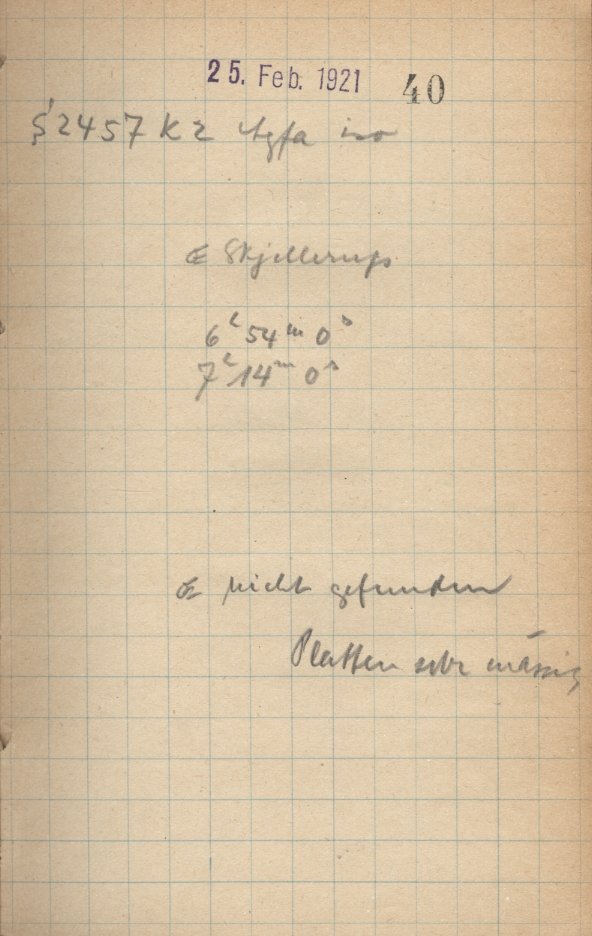 25. Feb. 1921 40
2457 K2 Agfa iso
☄ Skjellerups
6ʰ 54ᵐ 0ˢ
7ʰ 14ᵐ 0ˢ
☄ nicht gefunden
Platten sehr mässig